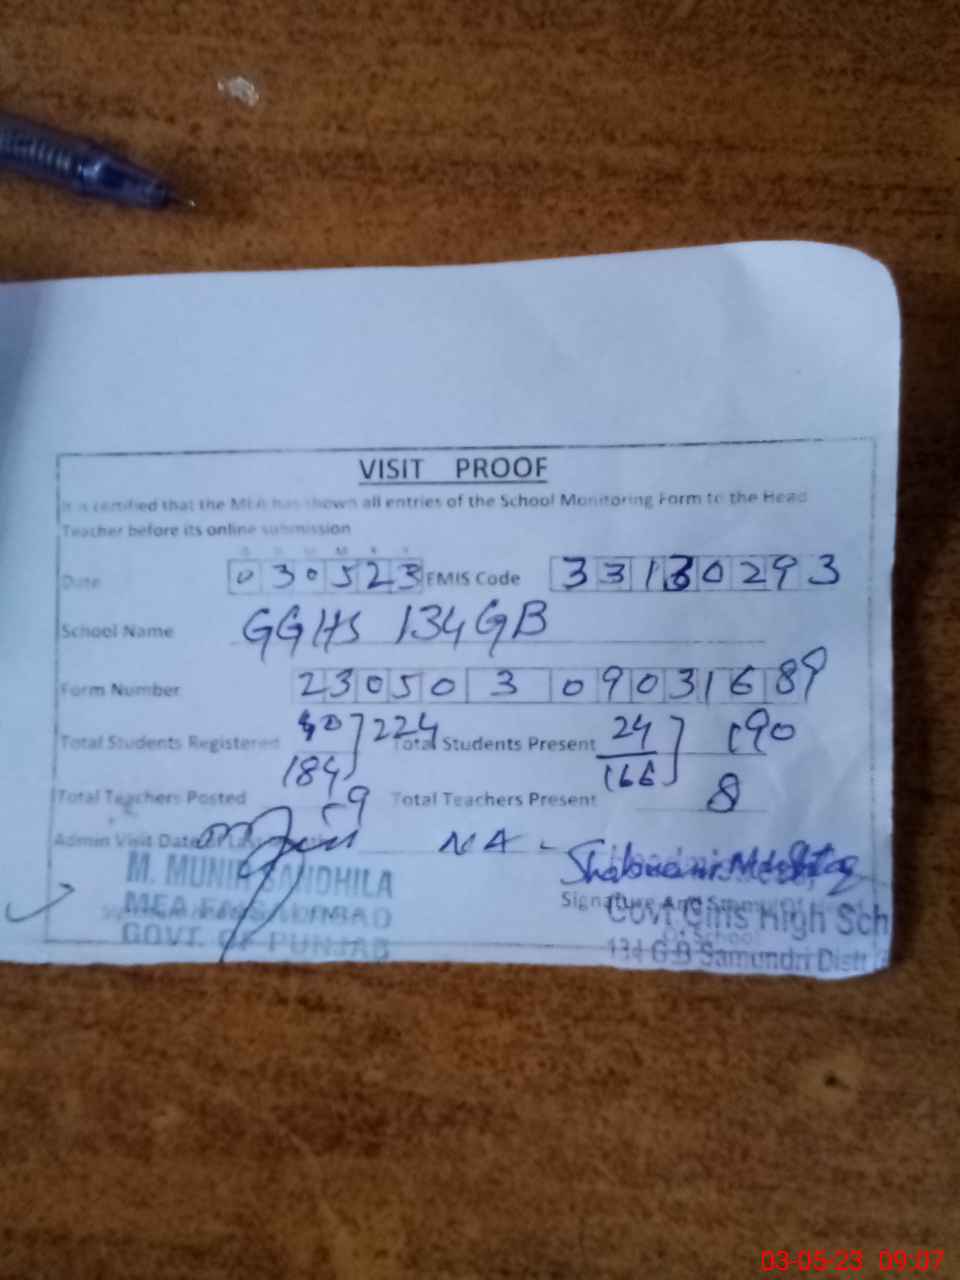 VISIT PROOF
It is certified that the MEA has shown all entries of the School Monitoring Form to the Head
Teacher before its online submission
D D M M Y Y
Date 030523 EMIS Code 33130293
School Name GGHS 134 GB
Form Number 23050 3 090316 89
Total Students Registered 40 184 224 Total Students Present 24 166 190
Total Teachers Posted 9 Total Teachers Present 8
Admin Visit Date NA -
M. MUNIR SANDHILA
MEA FAISALABAD
GOVT. OF PUNJAB
Signature And
Govt Girls High Sch
134 G.B Samundri Distt
03-05-23 09:07